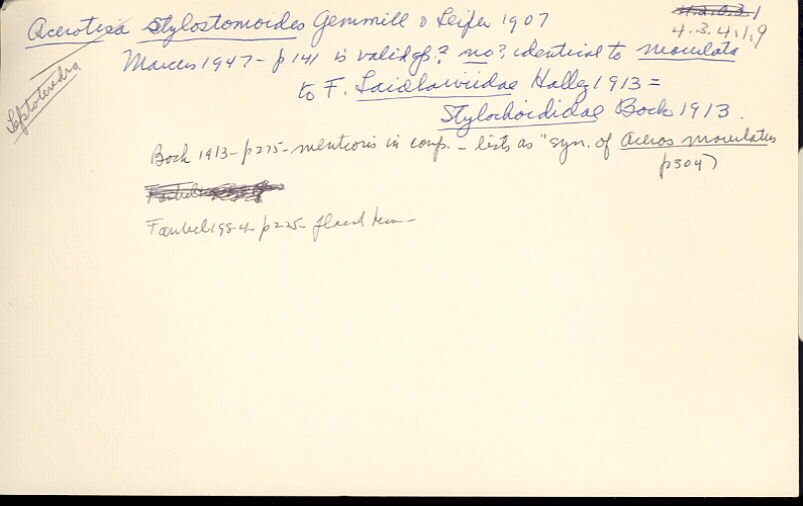 Acerotisa stylostomoides Gemmill & Leiper 1907
4.2.0.3.1
4.3.4.1.9
Leptoteredra
Marcus 1947 - p 141 is valid sp.? no? identical to maculata
to F. Laidlawiidae Hallez 1913 =
Stylochoididae Bock 1913.
Bock 1913 - p275 - mentions in comp. - lists as "syn. of Aceros maculatus
p304)
Faubel 1984 p225